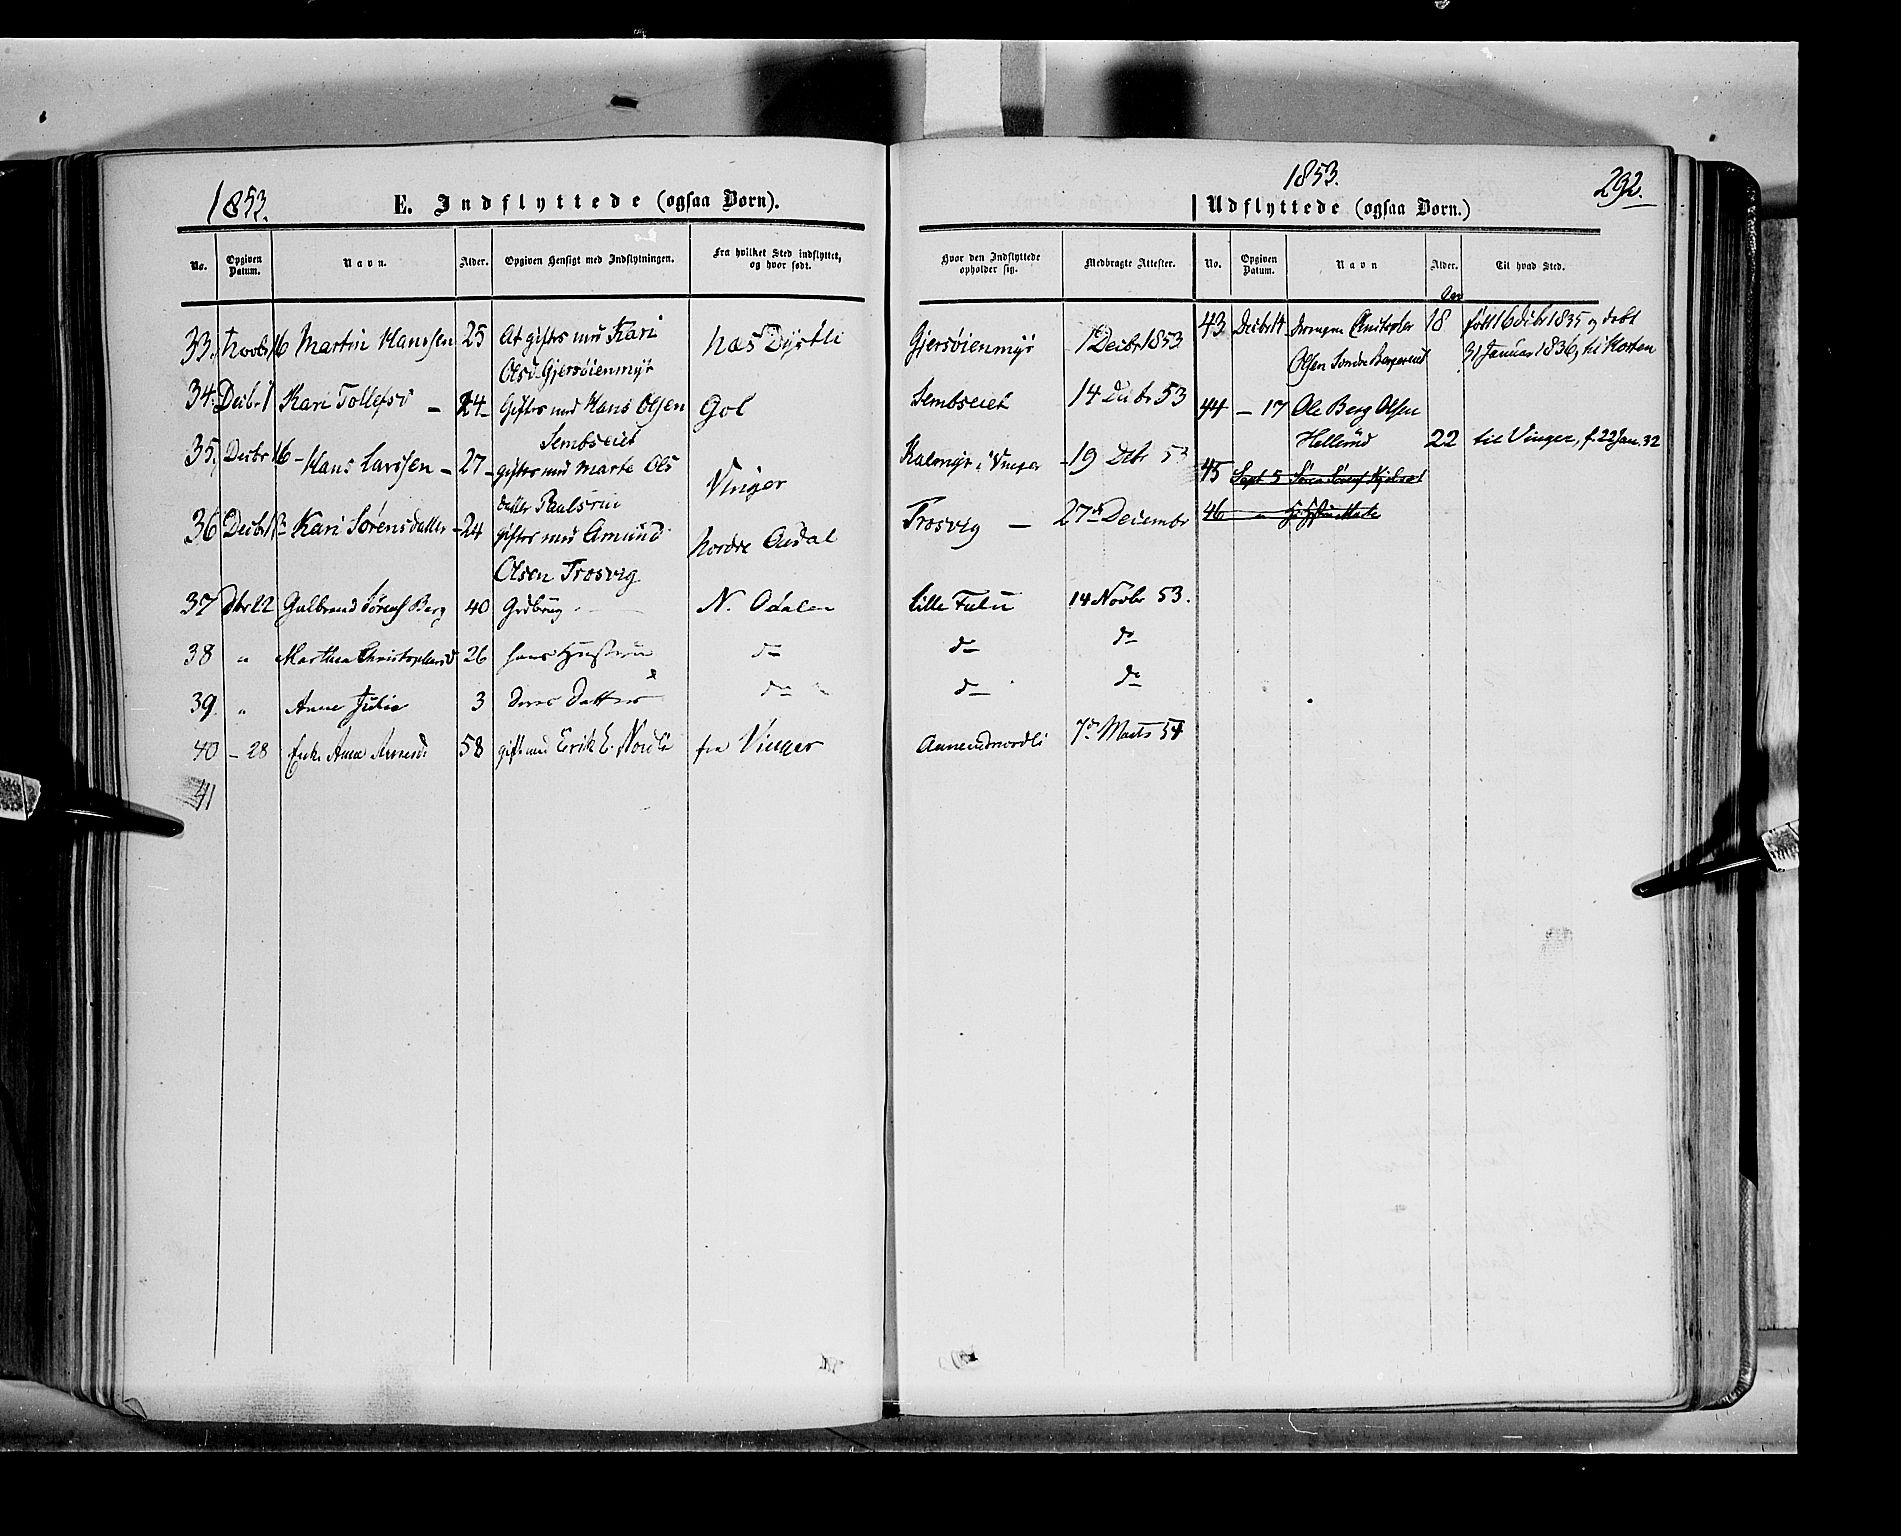 1853.
E. Indflyttede (ogsaa Børn).
No. Opgiven Datum. Navn. Alder. Opgiven Hensigt med Indflytningen. Fra hvilket Sted indflyttet, og hvor født.
33. Novbr 16 Martin Hanssen 25 At giftes med Kari Næs Dystli
Olsd. Gjersøienmyr
34. Decbr 1 Kari Tollefsd – 24 – Giftes med Hans Olsen Gol
Sembseiet
35. Decbr 16 – Hans Larssen – 27 – giftes med Marte Ols Vinger
datter Paulsrud
36 Decbr 18 – Kari Sørensdatter – 24 giftes med Amund Nordre Oudal
Olsen Trosvig
37 Dbr 22 Gulbrand Sørens Berg 40 Grdbrug N. Odalen
38 " Marthea Christophersd 26 hans Hustru do
39. " Anne Julie 3 deres Datter do
40 – 28 Enke Anne Amundsd 58 gift med Erik E. Nordli fra Vinger
41
1853.
292.
Udflyttede (ogsaa Børn.)
Hvor den Indflyttede opholder sig. Medbragte Attester. No. Opgiven Datum. Navn Alder. Til hvad Sted.
Aar
Gjersøienmyr 1 Decbr 1853
Sembseiet 14 Decbr 53
Kalmyr i Vinger – 19 Dcbr 53
Trosvig – 27de Decembr
Lille Fulu 14 Novbr 53.
do do
do do
Amundnordli 7de Marts 54
43 Decbr 14 Drengen Christopher 18 født 16 Decbr 1835 og døbt
Olsen Søndre Bergerud 31 Januar 1836, til Horten
44 – 17 Ole Berg Olsen
Hellerud 22 til Vinger, f. 22 Jan. 32
45 Sept 5
46 "